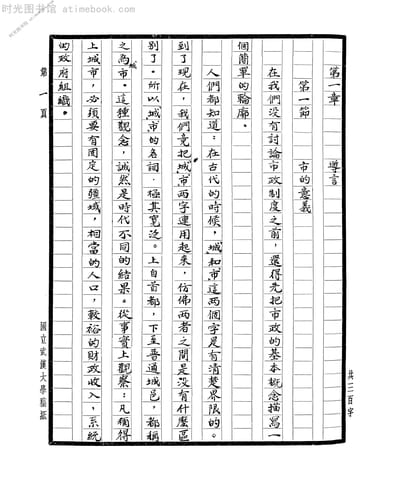 时光图书馆 - atimebook.com
第一章　導言
第一節　市的意義
在我們没有討論市政制度之前，還得先把市政的基本概念描寫一
個簡單的輪廓。
人們都知道：在古代的時候，城和市這两個字是有清楚界限的。
到了現在，我們竟把城市两字連用起來，仿佛两者之間是没有什麼區
別了。所以城市的名詞，極其寬泛。上自首都，下至普通城邑，都稱
之為城市。這種觀念，誠然是時代不同的結果。從事實上觀察：凡稱得
上城市，必須要有固定的疆域，相當的人口，較裕的財政收入，系統
的政府組織。
第一頁
國立武漢大學稿紙
共三百字
时光图书馆 - atimebook.com